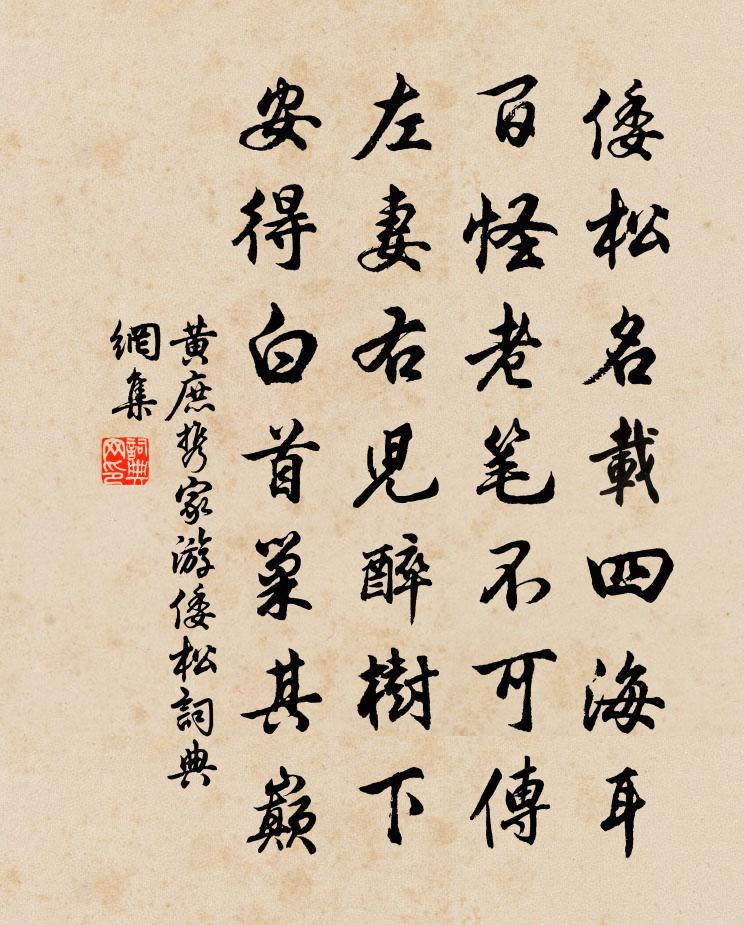 倭松名載四海耳
百怪老笔不可傳
左妻右児醉樹下
安得白首巢其巔
黄庶携家游倭松詞典
網集
詞典
网印